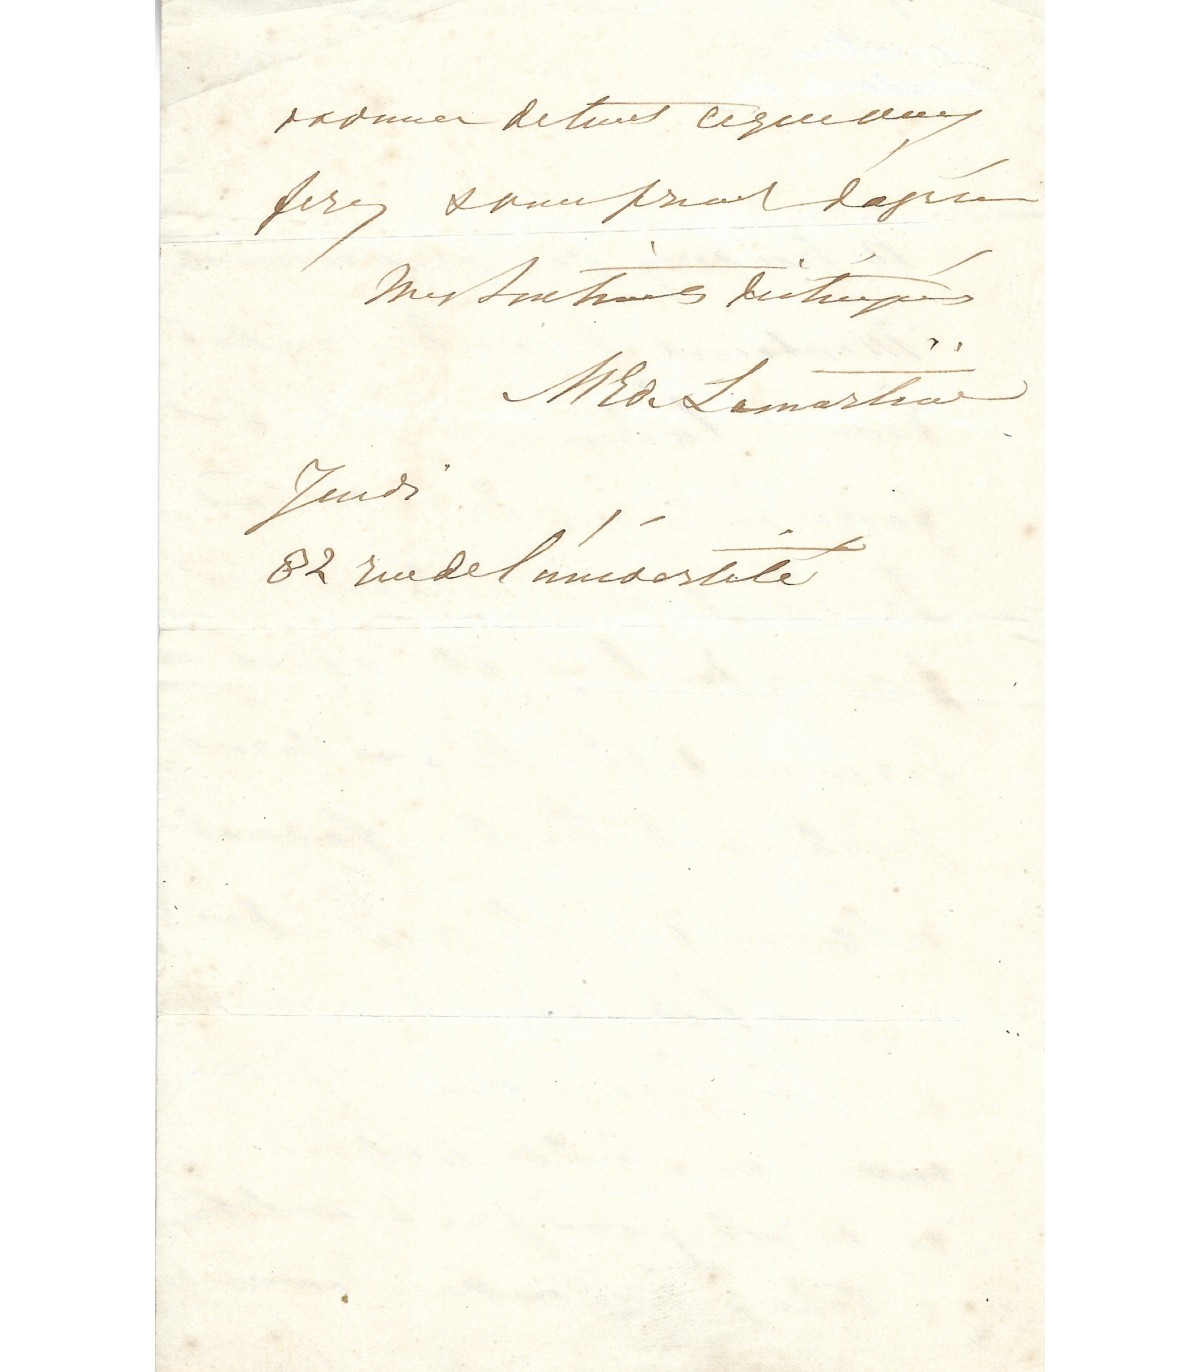 donner de tout ce que vous
ferez vous priant d'agréer
Mes sentiments distingués
ME de Lamartine
Jeudi
82 rue de l'université